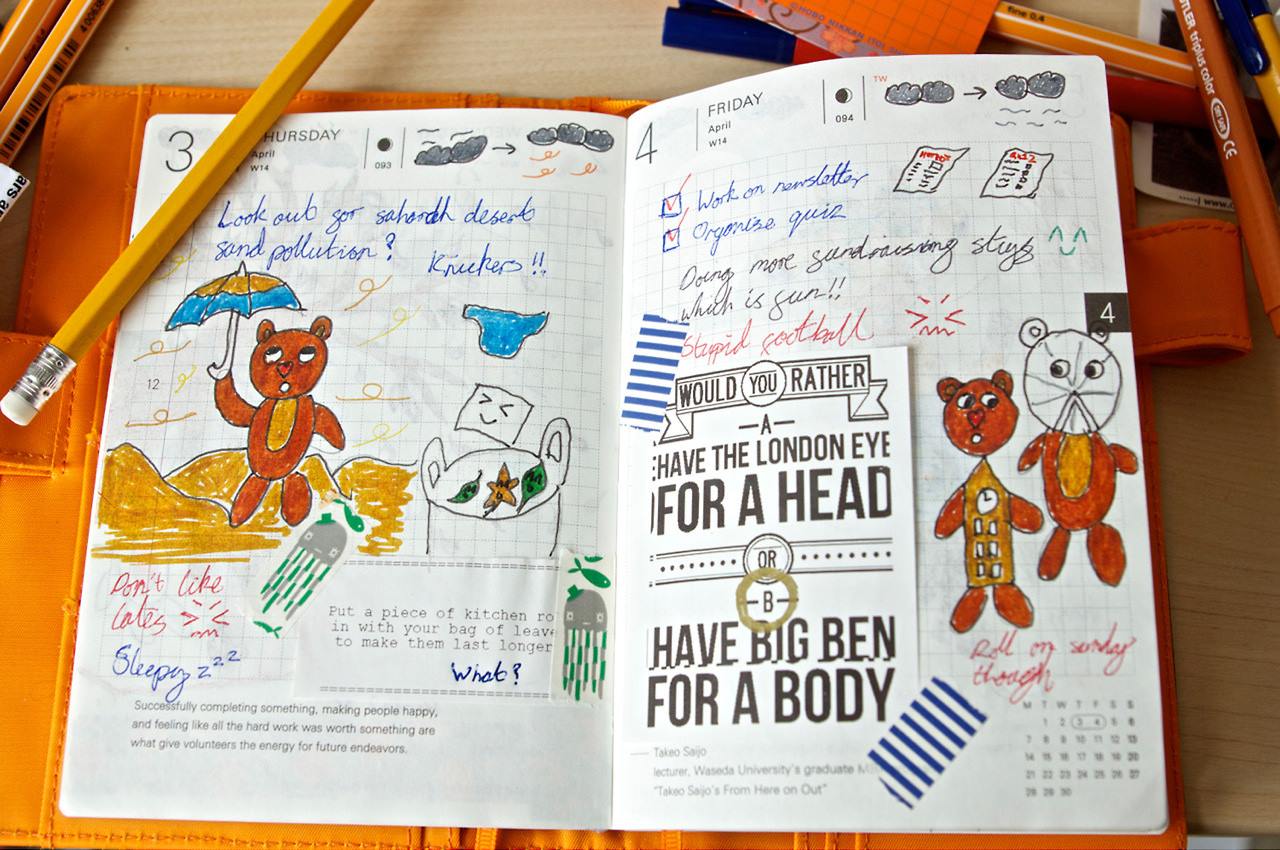 3
THURSDAY
April
W14
093
Look out for saharah desert
sand pollution?
Knickers!!
12
Don't like
lates
Sleepy zzz
Put a piece of kitchen ro
in with your bag of leave
to make them last longer
What?
Successfully completing something, making people happy,
and feeling like all the hard work was worth something are
what give volunteers the energy for future endeavors.
4
FRIDAY
April
W14
094
TW
Work on newsletter
Organise quiz
Doing more fundraising stuff
which is fun!!
Stupid football
4
WOULD YOU RATHER
-A-
HAVE THE LONDON EYE
FOR A HEAD
OR
-B-
HAVE BIG BEN
FOR A BODY
Roll on sunday
though
Takeo Saijo
lecturer, Waseda University's graduate
"Takeo Saijo's From Here on Out"
M T W T F S S
1 2 3 4 5 6
7 8 9 10 11 12 13
14 15 16 17 18 19 20
21 22 23 24 25 26 27
28 29 30
©HOBO NIKKAN ITOI
fine 0,4
triplus color
CE